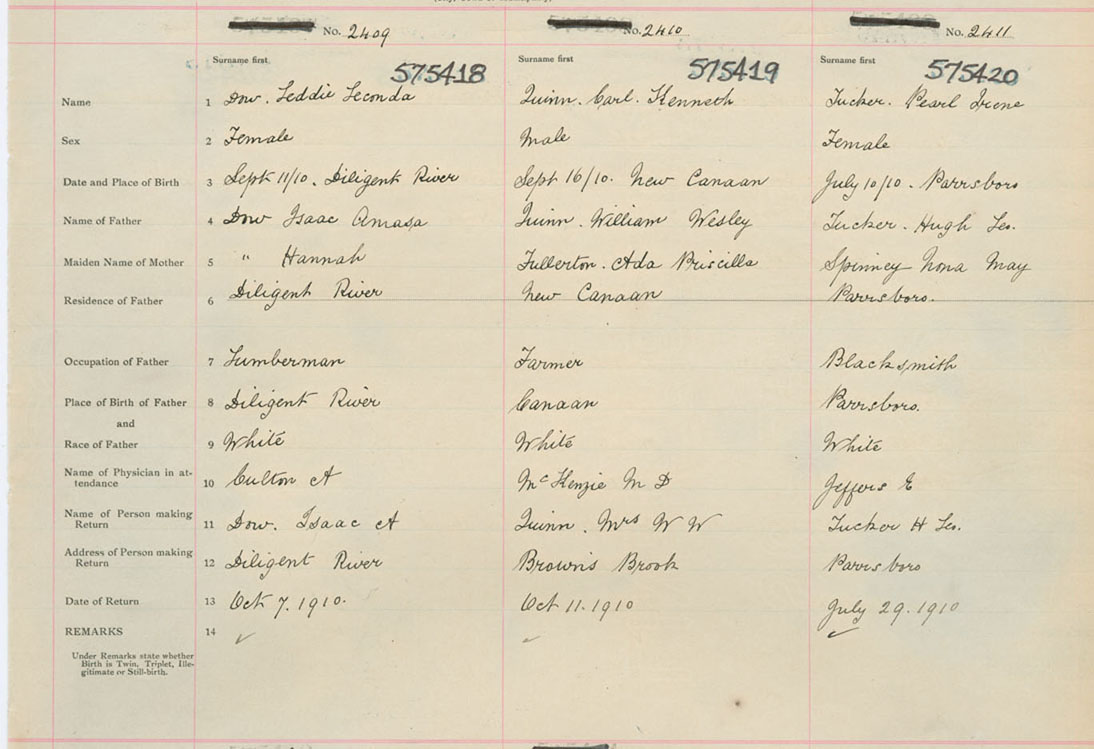 No. 2409 No. 2410 No. 2411
Surname first. Surname first Surname first
575418 575419 575420
Name 1 Dow. Leddie Leconda Quinn. Carl. Kenneth Tucker. Pearl Irene
Sex 2 Female Male Female
Date and Place of Birth 3 Sept 11/10. Diligent River Sept 16/10. New Canaan July 10/10 - Parrsboro
Name of Father 4 Dow Isaac Amasa Quinn. William Wesley Tucker. Hugh Geo.
Maiden Name of Mother 5 " Hannah Fullerton. Ada Priscilla Spinney Nona May
Residence of Father 6 Diligent River New Canaan Parrsboro.
Occupation of Father 7 Lumberman Farmer Blacksmith
Place of Birth of Father 8 Diligent River Canaan Parrsboro.
and
Race of Father 9 White White White
Name of Physician in at-
tendance 10 Culton A McKenzie M D Jeffers E
Name of Person making
Return 11 Dow. Isaac A Quinn. Mrs W W Tucker H Geo.
Address of Person making
Return 12 Diligent River Browns Brook Parrsboro
Date of Return 13 Oct 7. 1910. Oct 11. 1910 July 29. 1910
REMARKS 14
Under Remarks state whether
Birth is Twin, Triplet, Ille-
gitimate or Still-birth.